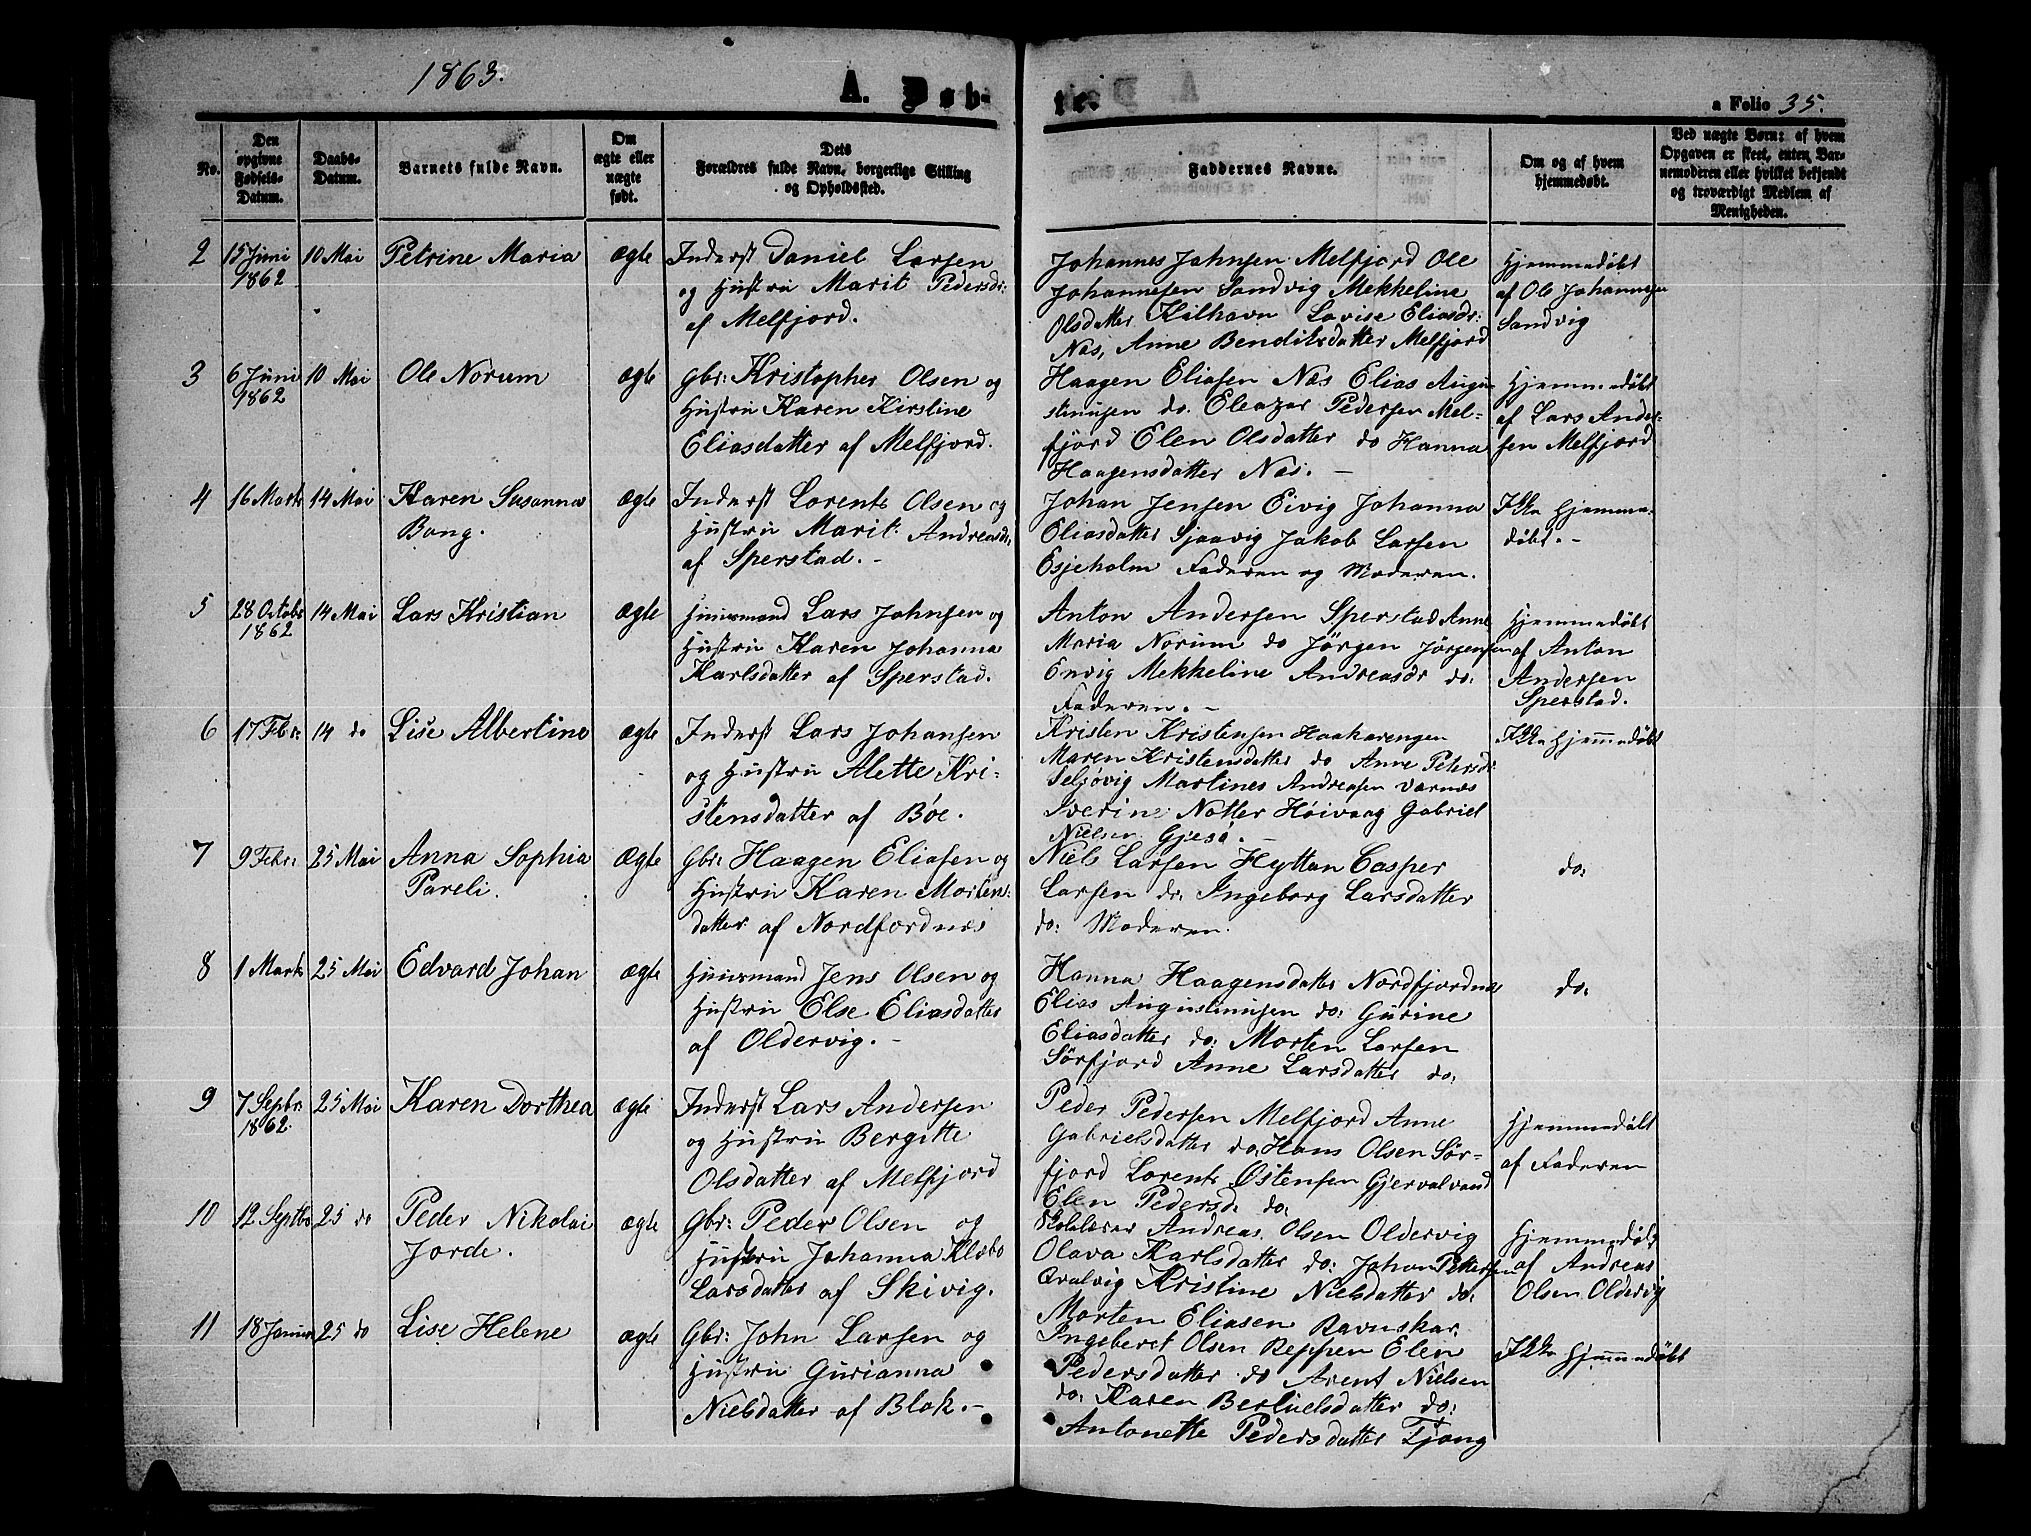 1863.
A. Døb-
te.
a Folio 35.
No.
Den opgivne Fødsels-Datum.
Daabs-Datum.
Barnets fulde Navn.
Om ægte eller uægte født.
Dets Forældres fulde Navn, borgerlige Stilling og Opholdssted.
Faddernes Navne.
Om og af hvem hjemmedøbt.
Ved uægte Børn: af hvem Opgaven er skeet, enten Barnemoderen eller hvilket bekjendt og troværdigt Medlem af Menigheden.
2 15 Juni 1862 10 Mai Petrine Maria ægte
Inderst Daniel Larsen
og Hustru Marit Pedersdr:
af Melfjord.
Johannes Jahnsen Melfjord Ole
Johannesen Sandvig Mekkeline
Olsdatter Kilhavn Lovise Eliasdr:
Nas, Anne Benditsdatter Melfjord
Hjemmedøbt
af Ole Johannesen
Sandvig
3 6 Juni 1862 10 Mai Ole Norum ægte
Gbr: Kristopher Olsen og
Hustru Karen Kirstine
Eliasdatter af Melfjord.
Haagen Eliasen Nas Elias Augu-
stinusen do. Eleazar Pedersen Mel-
fjord Elen Olsdatter do Hanna
Haagensdatter Nas. -
Hjemmedøbt
af Lars Ander-
sen Melfjord
4 16 Marts 14 Mai Karen Susanna
Bang.
ægte
Inderst Lorents Olsen og
Hustru Marit Andreasdr.
af Sperstad. -
Johan Jensen Eivig Johanna
Eliasdatter Gjaavig Jakob Larsen
Esjeholm Faderen og Moderen.
Ikke Hjemme-
døbt. -
5 28 Octobr 1862 14 Mai Lars Kristian ægte
Huusmand Lars Johnsen og
Hustru Karen Johanna
Karlsdatter af Sperstad.
Anton Andersen Sperstad Anne
Maria Norum do Jørgen Jørgensen
Envig Mekkeline Andreasdr do:
Faderen. -
Hjemmedøbt
af Anton
Andersen
Sperstad.
6 17 Febr: 14 do Lise Albertine ægte
Inderst Lars Johansen
og Hustru Alette Kri-
stensdatter af Bøe.
Kristen Kristensen Haakarengen
Maren Kristensdatter do Anne Petersdr
Seljövig Martines Andreasen Varnæs
Iverine Notler Höivaag Gabriel
Nielsen Gjesö. -
Ikke Hjemmedøbt
7 9 Febr: 25 Mai Anna Sophia
Pareli.
Ægte
Gbr: Haagen Eliasen og
Hustru Karen Mortens:
datter af Nordfordnæs
Niels Larsen Hyttan Casper
Larsen do: Ingeborg Larsdatter
do: Moderen.
do:
8 1 Marts 25 Mai Edvard Johan ægte
Huusmand Jens Olsen og
Hustru Else Eliasdatter
af Oldervig. -
Hanna Haagensdatter Nordfjordnæs
Elias Augustinusen do: Gurine
Eliasdatter do: Morten Larsen
Sörfjord Anne Larsdatter do:
do:
9 7 Septbr: 1862 25 Mai Karen Dorthea ægte
Inderst Lars Andersen
og Hustru Bergitte
Olsdatter af Melfjord
Peder Pedersen Melfjord Anne
Gabrielsdatter do: Hans Olsen Sör-
fjord Lorents Østensen Gjervalvand
Elen Pedersd do:
Hjemmedøbt
af Faderen
10 12 Septbr 25 do Peder Nikolai
Jorde.
ægte
Gbr: Peder Olsen og
Hustru Johanna Klæbo
Larsdatter af Skivig.
Skolelærer Andreas Olsen Oldervig
Olava Karlsdatter do: Johan Pettersen
Qvalvig Kristine Nielsdatter do:
Hjemmedøbt
af Andreas
Olsen Oldervig
11 18 Januar 25 do Lise Helene ægte
Gbr: John Larsen og
Hustru Gurianna
Nielsdatter af Blok. -
Morten Eliasen Ravnskar
Ingebret Olsen Reppen Elen
Pedersdatter do Arent Nielsen
do: Karen Bertuelsdatter do:
Antonette Pedersdatter Tjong
Ikke Hjemmedøbt